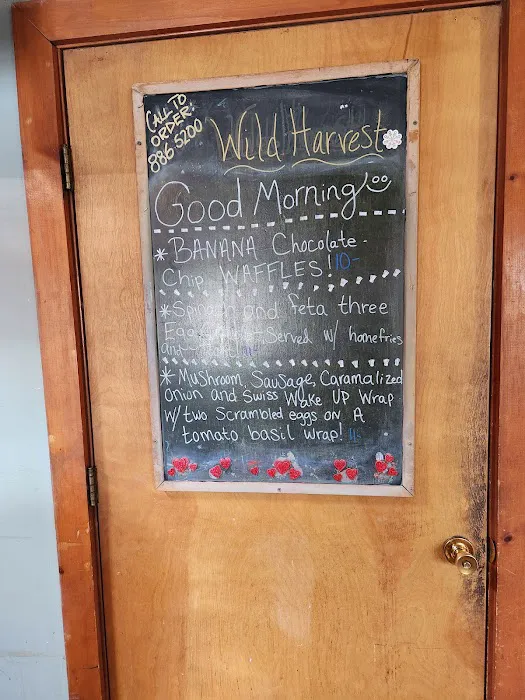 CALL TO
ORDER:
886 5200
Wild Harvest
Good Morning
*BANANA Chocolate-
Chip WAFFLES! 10-
*Spinach and feta three
Egg - Served w/ homefries
and
*Mushroom, Sausage, Caramalized
Onion and Swiss Wake UP Wrap
w/ two Scrambled eggs on A
tomato basil wrap! 11-